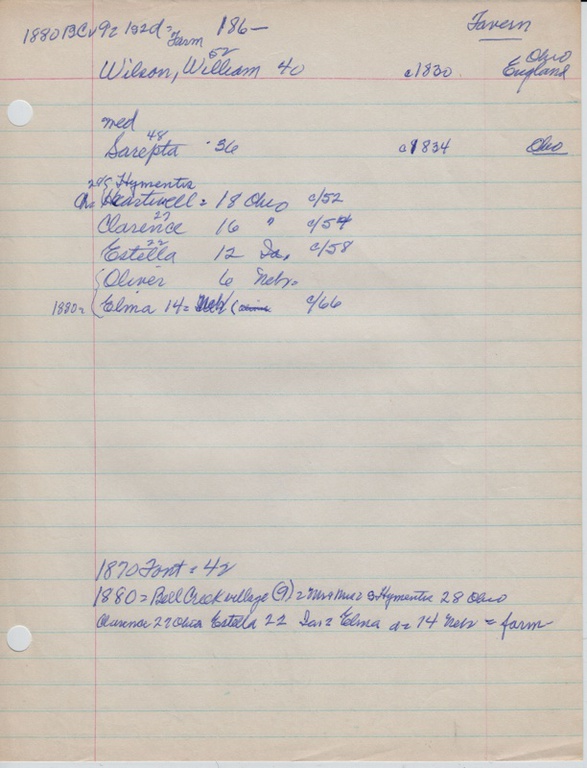 1880 BCv 92 1s2d = Farm 186— Tavern
52 Ohio
Wilson, William 40 c1830 England
med
48
Sarepta 36 c1834 Ohio
28/5 Hymentus
Ch Heartwell = 18 Ohio c/52
27
Clarence 16 " c/54
22
Estella 12 Ia. c/58
Oliver 6 Nebr.
1880= Elma 14= Nebr c/66
1870 Font = 42
1880 = Bell Creek village (9) = Hymentus 28 Ohio
Clarence 27 Ohio Estella 22 Ia = Elma d= 14 Nebr = farm